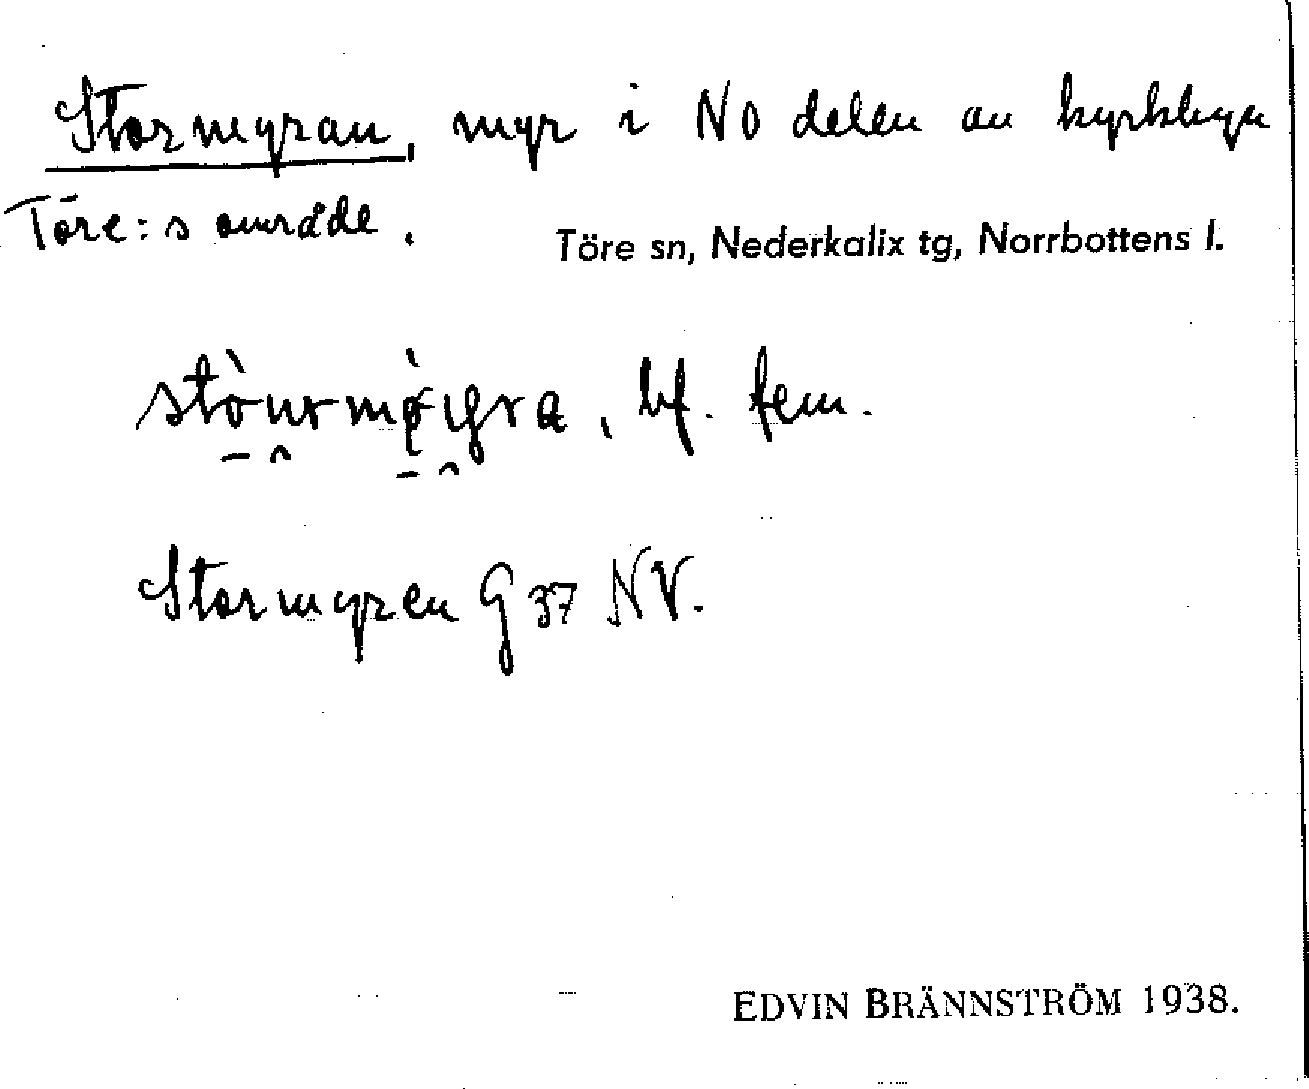 Stormyran, myr i NO delen av kyrkbyn
Töre:s område.
Töre sn, Nederkalix tg, Norrbottens l.
bf. fem.
Stormyren G 37 NV.
EDVIN BRÄNNSTRÖM 1938.